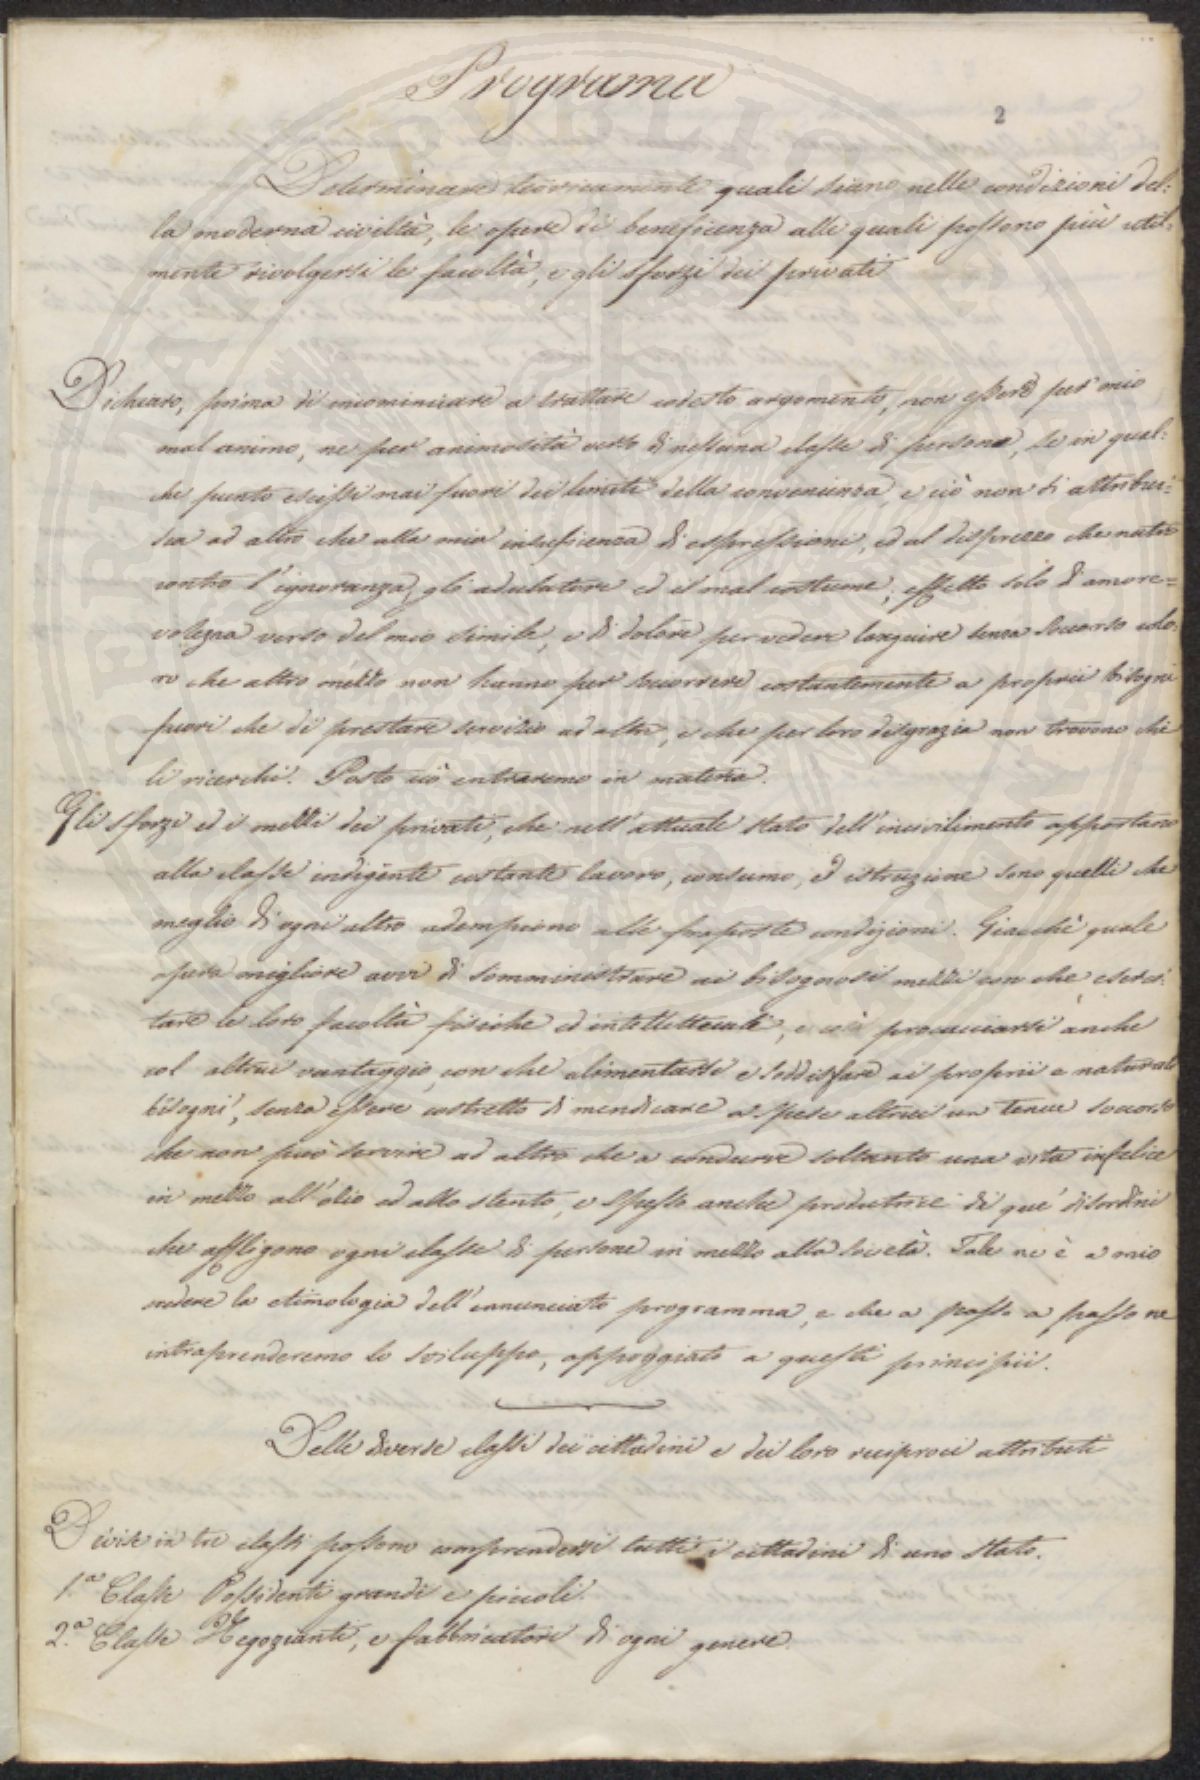 Programa
2
Determinare teoricamente quali siano, nelle condizioni del-
la moderna civiltà, le opere di beneficenza alle quali possono più util-
mente rivolgersi le facoltà, e gli sforzi dei privati
Dichiaro, prima di incominciare a trattare codesto argomento, non essere per mio
mal animo, ne per animosità verso di nessuna classe di persone, se in qual-
che punto escissi mai fuori dei limiti della convenienza, e ciò non si attribui-
sca ad altro che alla mia insuficienza di espressioni, ed al disprezzo che nutro
contro l'ignoranza, gli adulatori ed il mal costume; effetto solo di amore-
volezza verso del mio simile, e di dolore per vedere languire senza soccorso colo-
ro che altro mezzo non hanno per soccorrere costantemente a proprii bisogni
fuori che di prestare servizio ad altri, e che per loro disgrazia non trovono chi
li ricerchi. Posto ciò entraremo in materia.
Gli sforzi ed i mezzi dei privati, che nell'attuale stato dell'incivilimento apportano
alla classe indigente costante lavoro, consumo, ed istruzione sono quelli che
meglio di ogni altro adempiono alle proposte condizioni. Giacchè quale
opera migliore avvi di somministrare ai bisognosi mezzi con che eserci-
tare le loro facoltà fisiche ed intellettuali, e così procacciarsi anche
col altrui vantaggio, con che alimentarsi e soddisfare ai proprii e naturali
bisogni, senza essere costretto di mendicare a spese altrui un tenue soccorso
che non può servire ad altro che a condurre soltanto una vita infelice
in mezzo all'ozio ed allo stento, e spesso anche produttrice di que' disordini
che affligono ogni classe di persone in mezzo alla società. Tale ne è a mio
vedere la etimologia dell'annunciato programma, e che a passo a passo ne
intraprenderemo lo sviluppo, appoggiato a questi principii.
Delle diverse classi dei cittadini e dei loro reciproci attributi
Divise in tre classi possono comprendersi tutti i cittadini di uno stato.
1.a Classe Possidenti grandi e piccoli.
2.a Classe Negozianti, e fabbricatori di ogni genere.